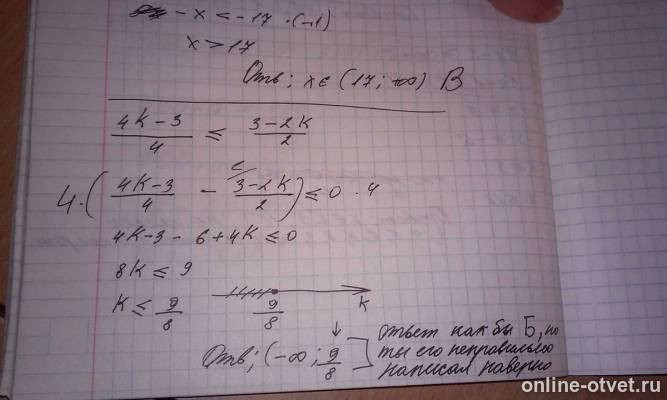 - x < -17 · (-1)
x > 17
Отв; x ∈ (17; +∞) В
(4K-3)/4 ≤ (3-2K)/2
4·((4K-3)/4 - (3-2K)/2) ≤ 0 · 4
4K-3 - 6 + 4K ≤ 0
8K ≤ 9
K ≤ 9/8
9/8 K
Отв; (-∞; 9/8]
ответ как бы Б, но
ты его неправильно
написал наверно
online-otvet.ru